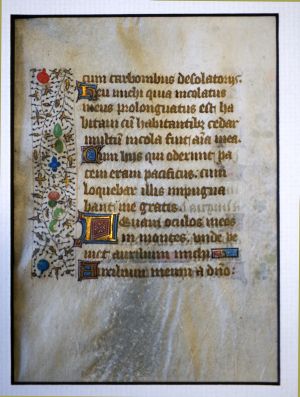 cum carbonibus desolatoriis.
Heu michi quia incolatus
meus prolonguatus est ha
bitaui cū habitantibꝫ cedar
multū incola fuit aīa mea.
Cum hiis qui oderunt pa
cem eram pacificus. cum
loquebar illis impugna
bant me gratis.
Leuaui oculos meos
in montes. unde ve
niet auxilium michi
Auxilium meum a dño: